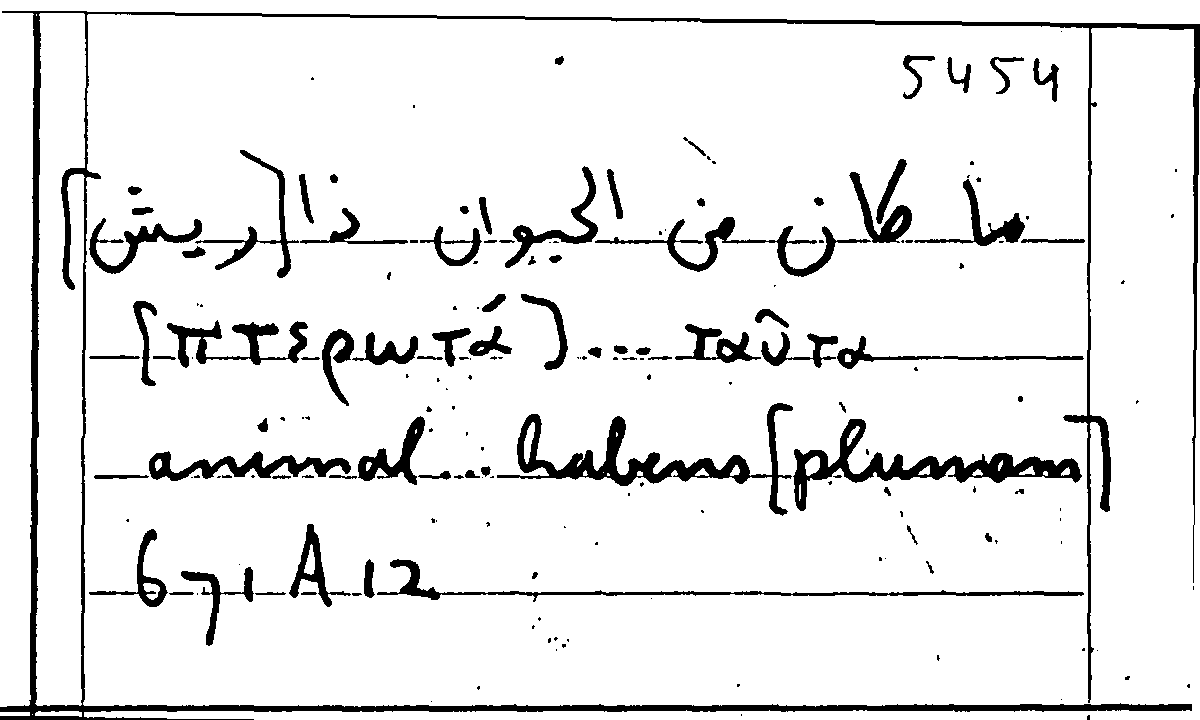 5454
ما كان من الحيوان ذا [ريش]
[πτερωτά] ... ταῦτα
animal ... habens [plumam]
671 A 12